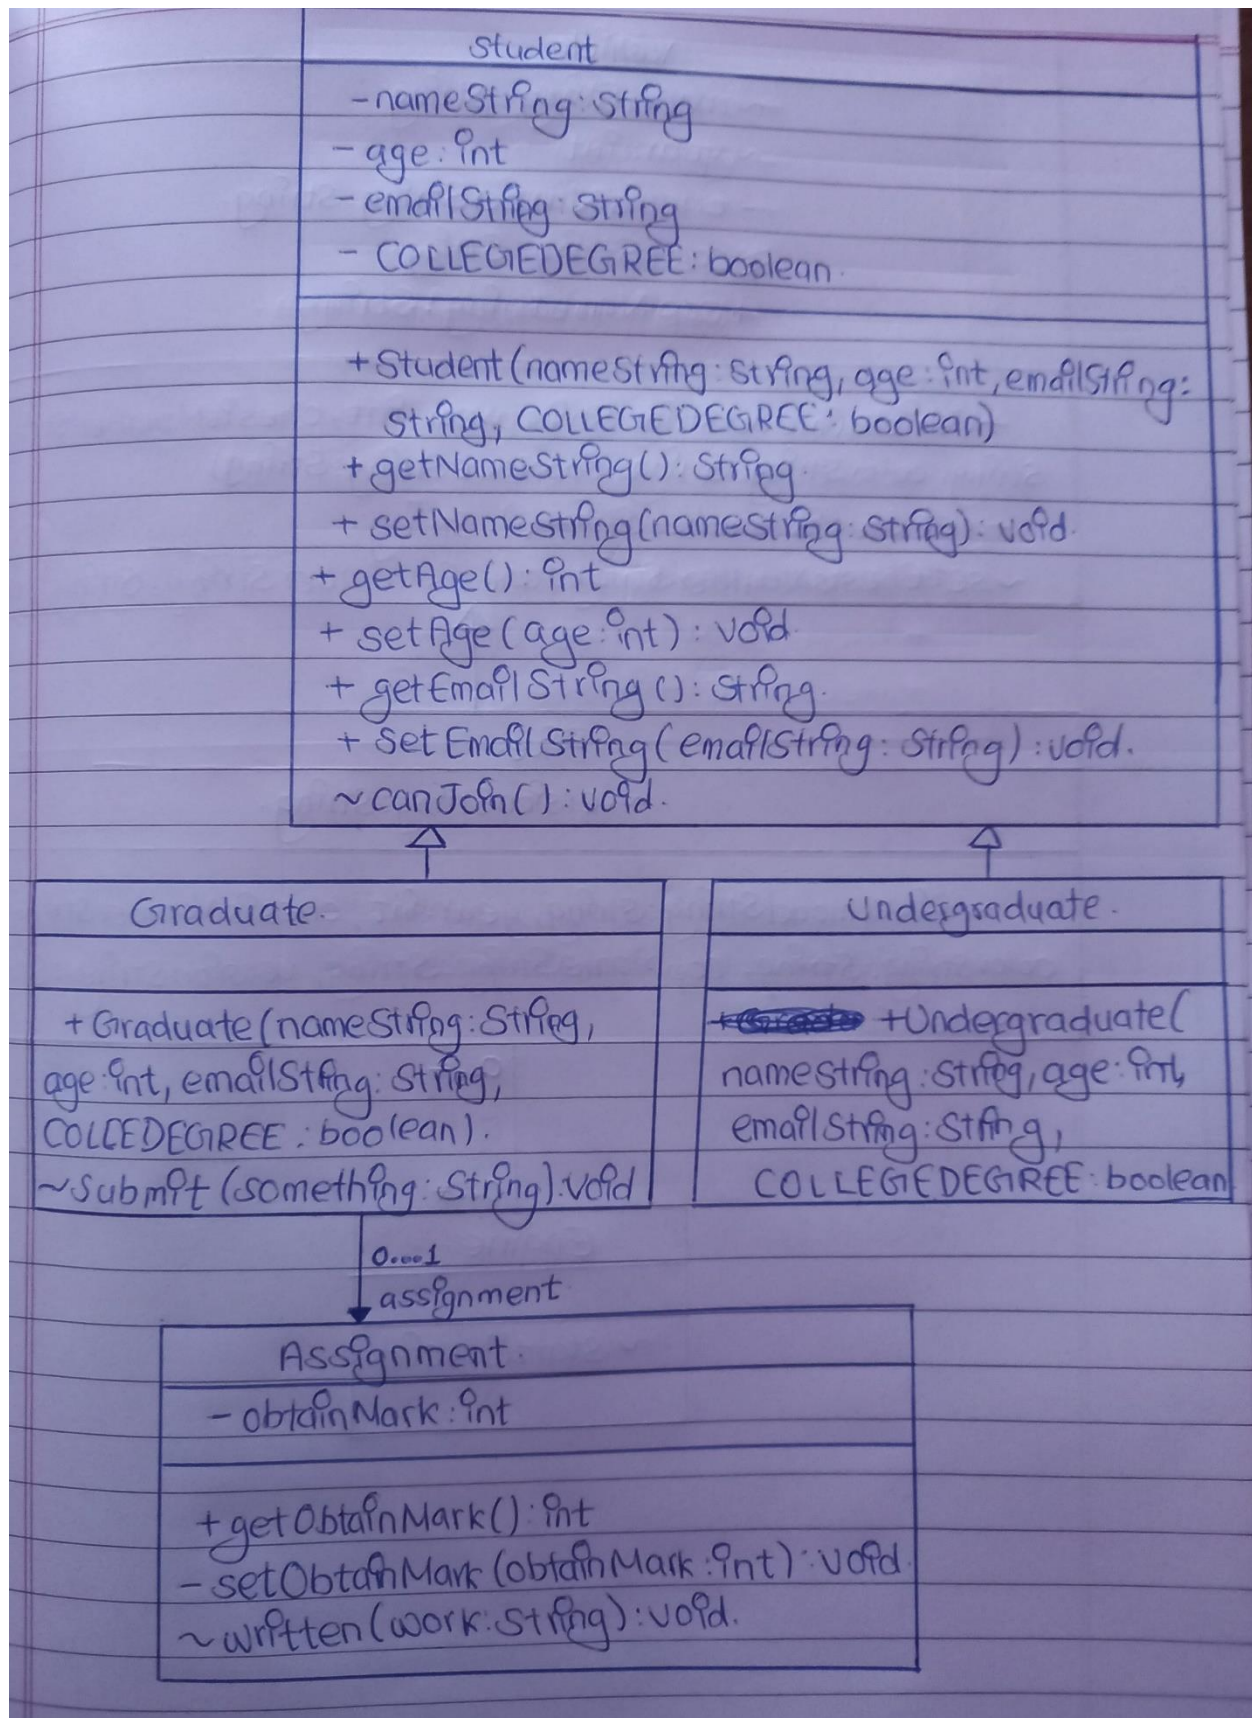 Student
- nameString : String
- age : int
- emailString : String
- COLLEGEDEGREE : boolean.
+ Student (nameString : String, age : int, emailString :
String, COLLEGEDEGREE : boolean)
+ getNameString() : String.
+ setNameString(nameString : String) : void.
+ getAge() : int
+ setAge (age : int) : void.
+ getEmailString () : String.
+ setEmailString (emailString : String) : void.
~ canJoin() : void.
Graduate.
+ Graduate (nameString : String,
age : int, emailString : String,
COLLEDEGREE : boolean).
~ Submit (something : String) : void
Undergraduate.
+Undergraduate(
nameString : String, age : int,
emailString : String,
COLLEGEDEGREE : boolean
0....1
assignment
Assignment.
- obtainMark : int
+ getObtainMark() : int
- setObtainMark (obtainMark : int) : void.
~ written (work : String) : void.